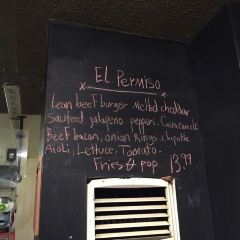 El Permiso
x x
Lean beef burger melted cheddar
sauteed jalapeno peppers. Guacamole
Beef bacon, onion rings, chipotle
Aioli, Lettuce, Tomato.
Fries & pop 13.99